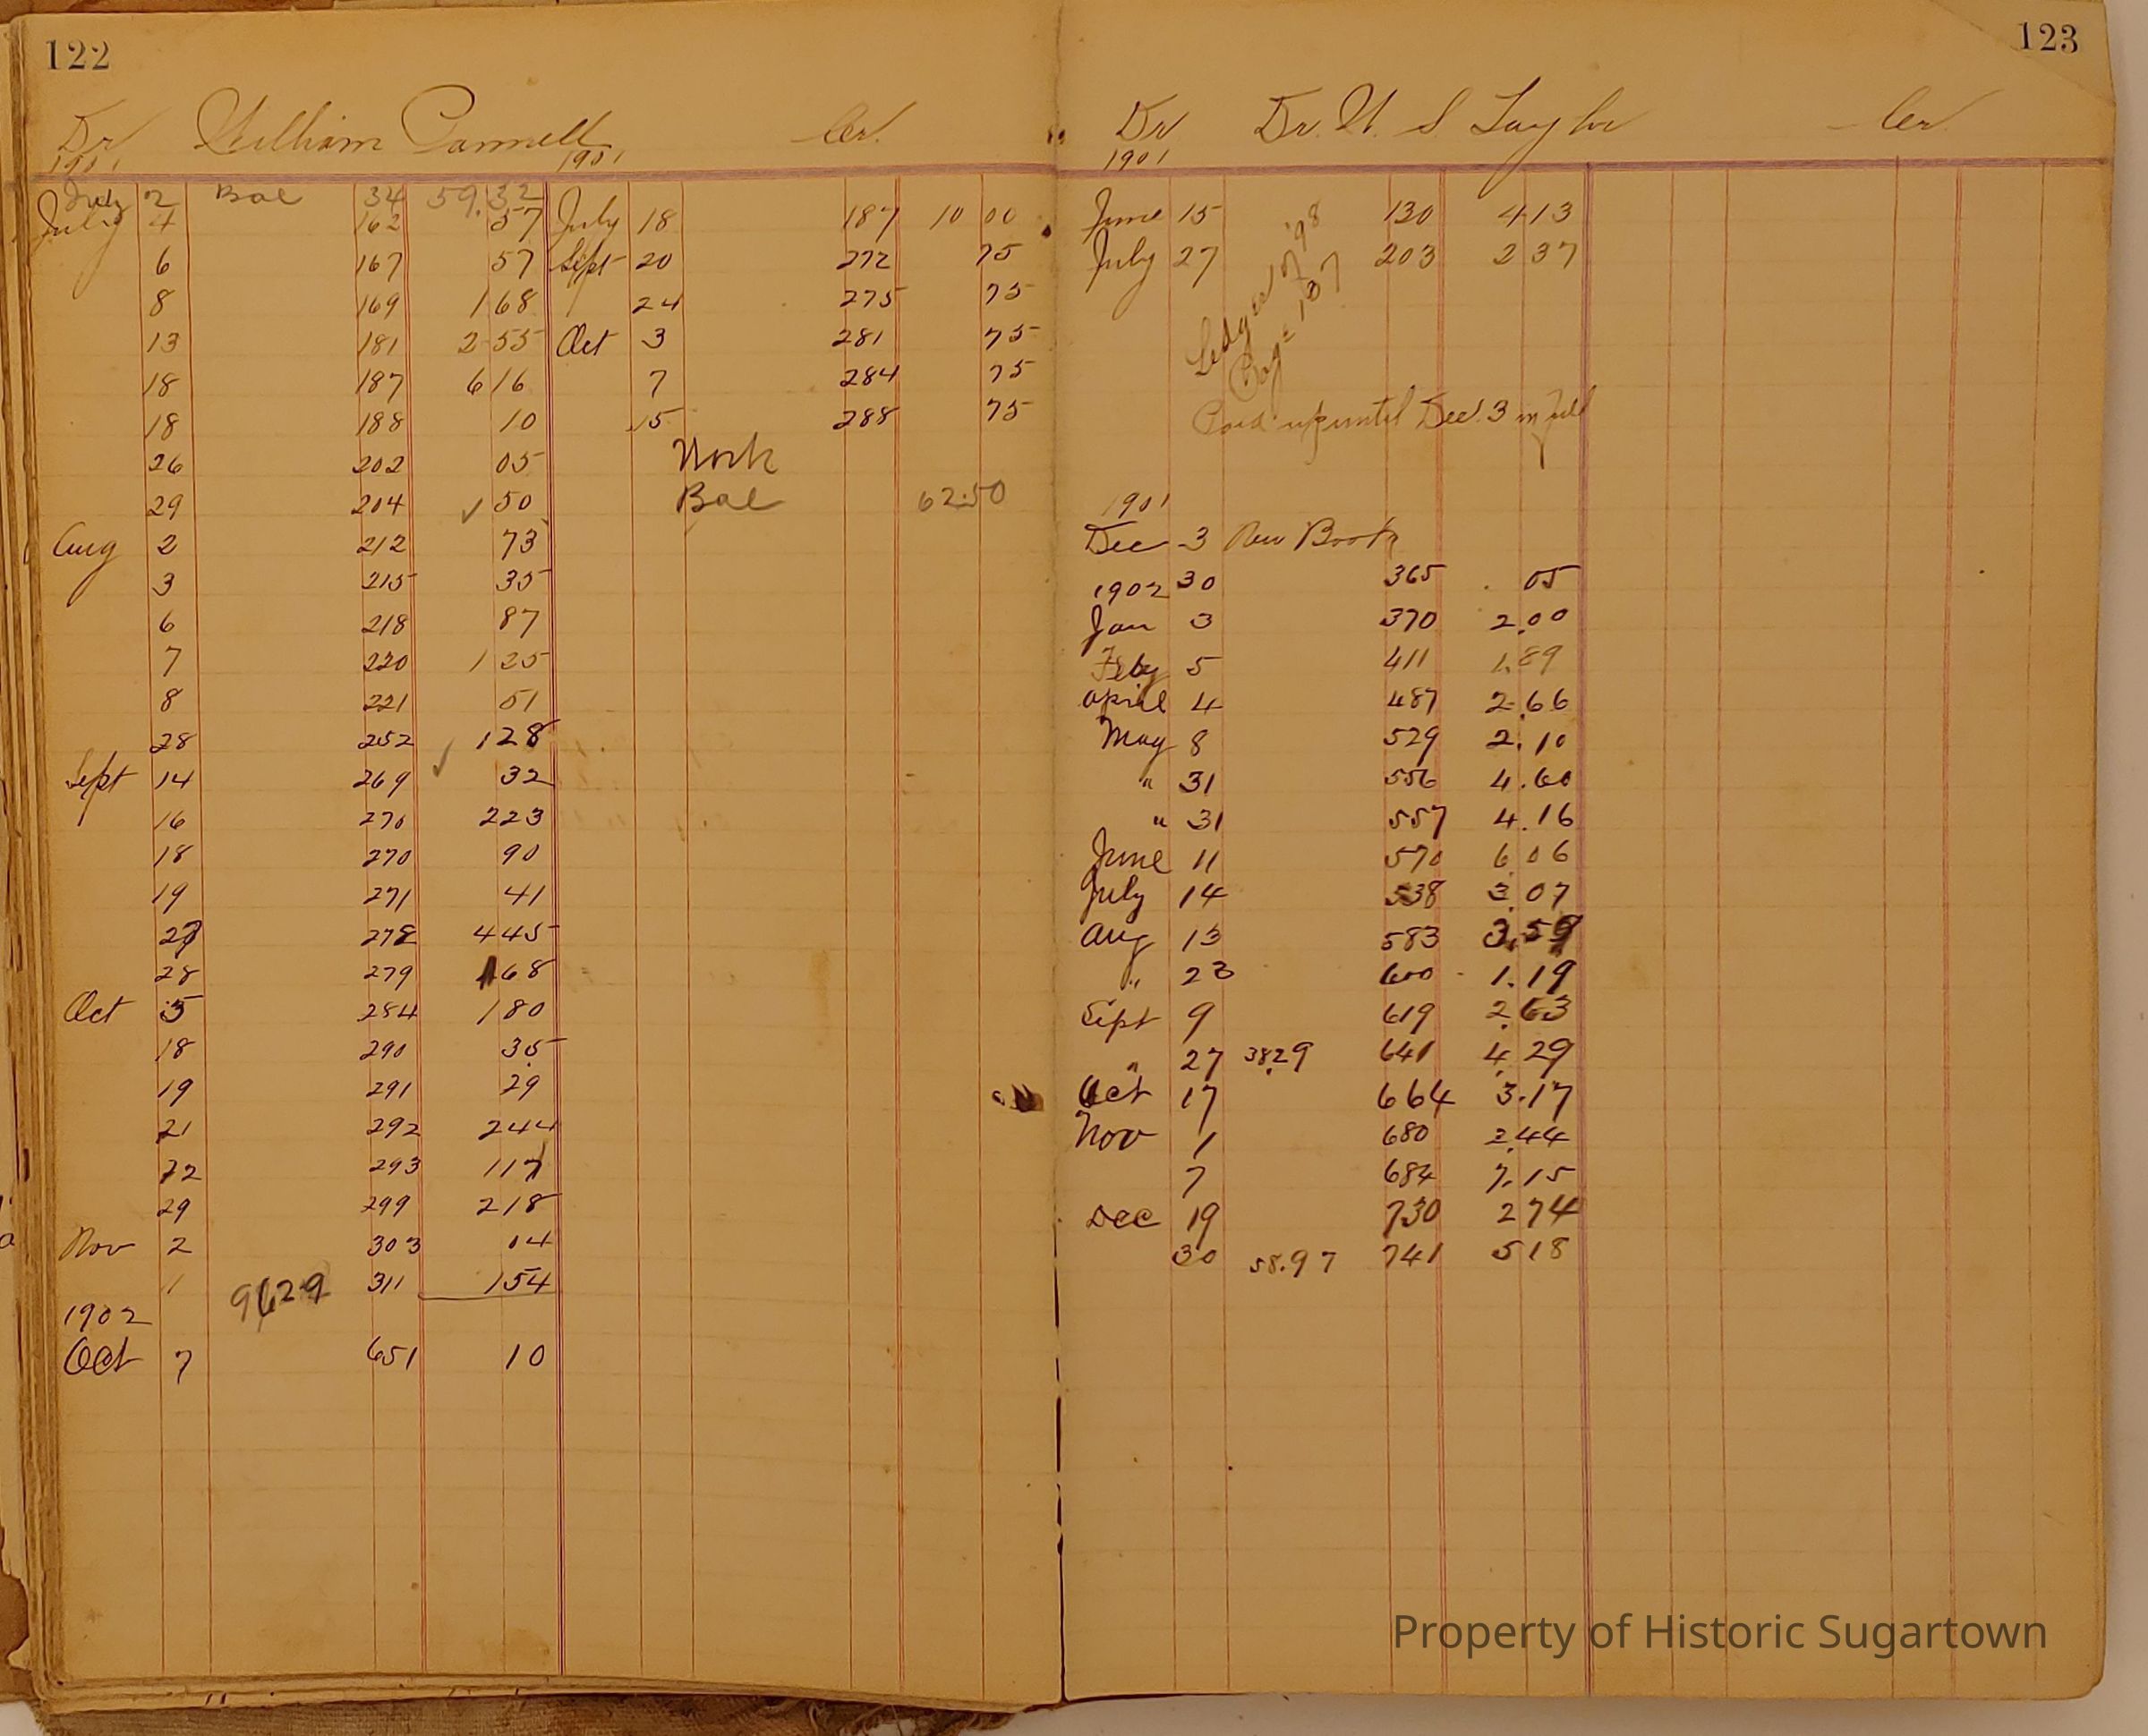 122
Dr William Cr.
1901 1901
July 2 Bal 34 59.32
July 4 162 57 July 18 187 10 00
6 167 57 Sept 20 272 75
8 169 1 68 24 275 75
13 181 2 55 Oct 3 281 75
18 187 6 16 7 284 75
18 188 10 15 288 75
26 202 05 Work
29 204 ✓ 50 Bal 62.50
Aug 2 212 73
3 215 35
6 218 87
7 220 1 25
8 221 51
28 252 1 28
Sept 14 269 ✓ 32
16 270 2 23
18 270 90
19 271 41
27 278 4 45
28 279 1 68
Oct 5 284 1 80
18 290 35
19 291 29
21 292 2 44
22 293 1 17
29 299 2 18
Nov 2 303 14
1 9629 311 1 54
1902
Oct 7 651 10
123
Dr Dr. U. S Taylor Cr
1901
June 15 130 4 13
July 27 203 2 37
Ledger of '98
Page 187
Paid up until Dec. 3 in full
1901
Dec 3 New Book
1902 30 365 05
Jan 3 370 2.00
Feby 5 411 1.89
April 4 487 2.66
May 8 529 2.10
" 31 556 4.60
" 31 557 4.16
June 11 570 6 06
July 14 538 3.07
Aug 13 583 3.59
" 23 600 1.19
Sept 9 619 2.63
" 27 38.29 641 4.29
Oct 17 664 3.17
Nov 1 680 2.44
7 684 7.15
Dec 19 730 2 74
30 58.97 741 5 18
Property of Historic Sugartown